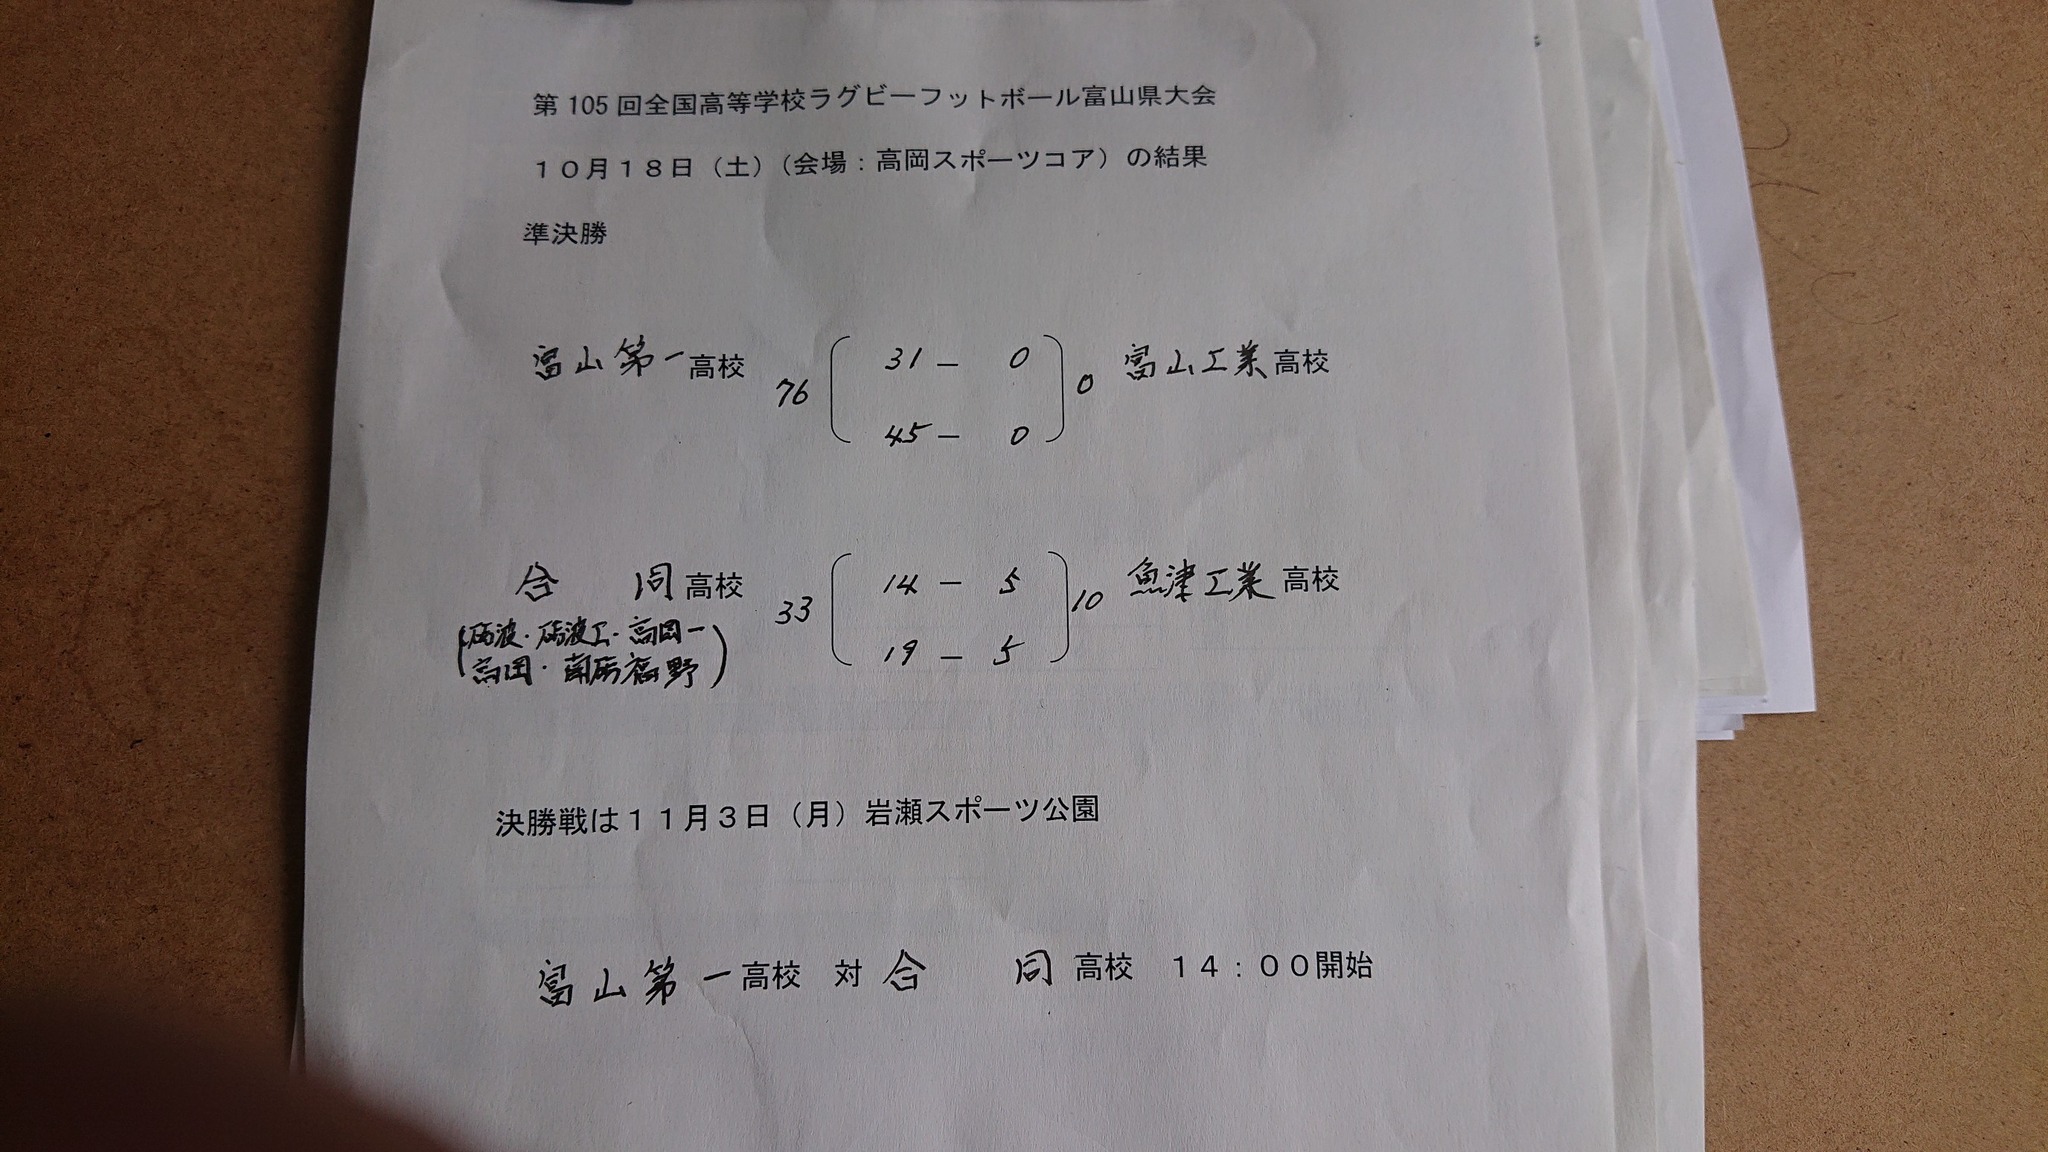 第105回全国高等学校ラグビーフットボール富山県大会
10月18日（土）（会場：高岡スポーツコア）の結果
準決勝
富山第一高校 76 31 - 0 0 富山工業高校
45 - 0
合同高校 33 14 - 5 10 魚津工業高校
19 - 5
(砺波・砺波工・高岡一
高岡・南砺福野)
決勝戦は11月3日（月）岩瀬スポーツ公園
富山第一高校 対 合同高校 14：00開始